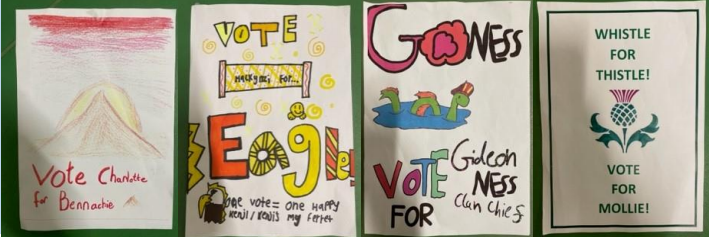 Vote Charlotte
for Bennachie
VOTE
for...
Eagle!
one vote = one Happy
my ferret
GO NESS
VOTE
FOR
Gideon
NESS
Clan Chief
WHISTLE
FOR
THISTLE!
VOTE
FOR
MOLLIE!